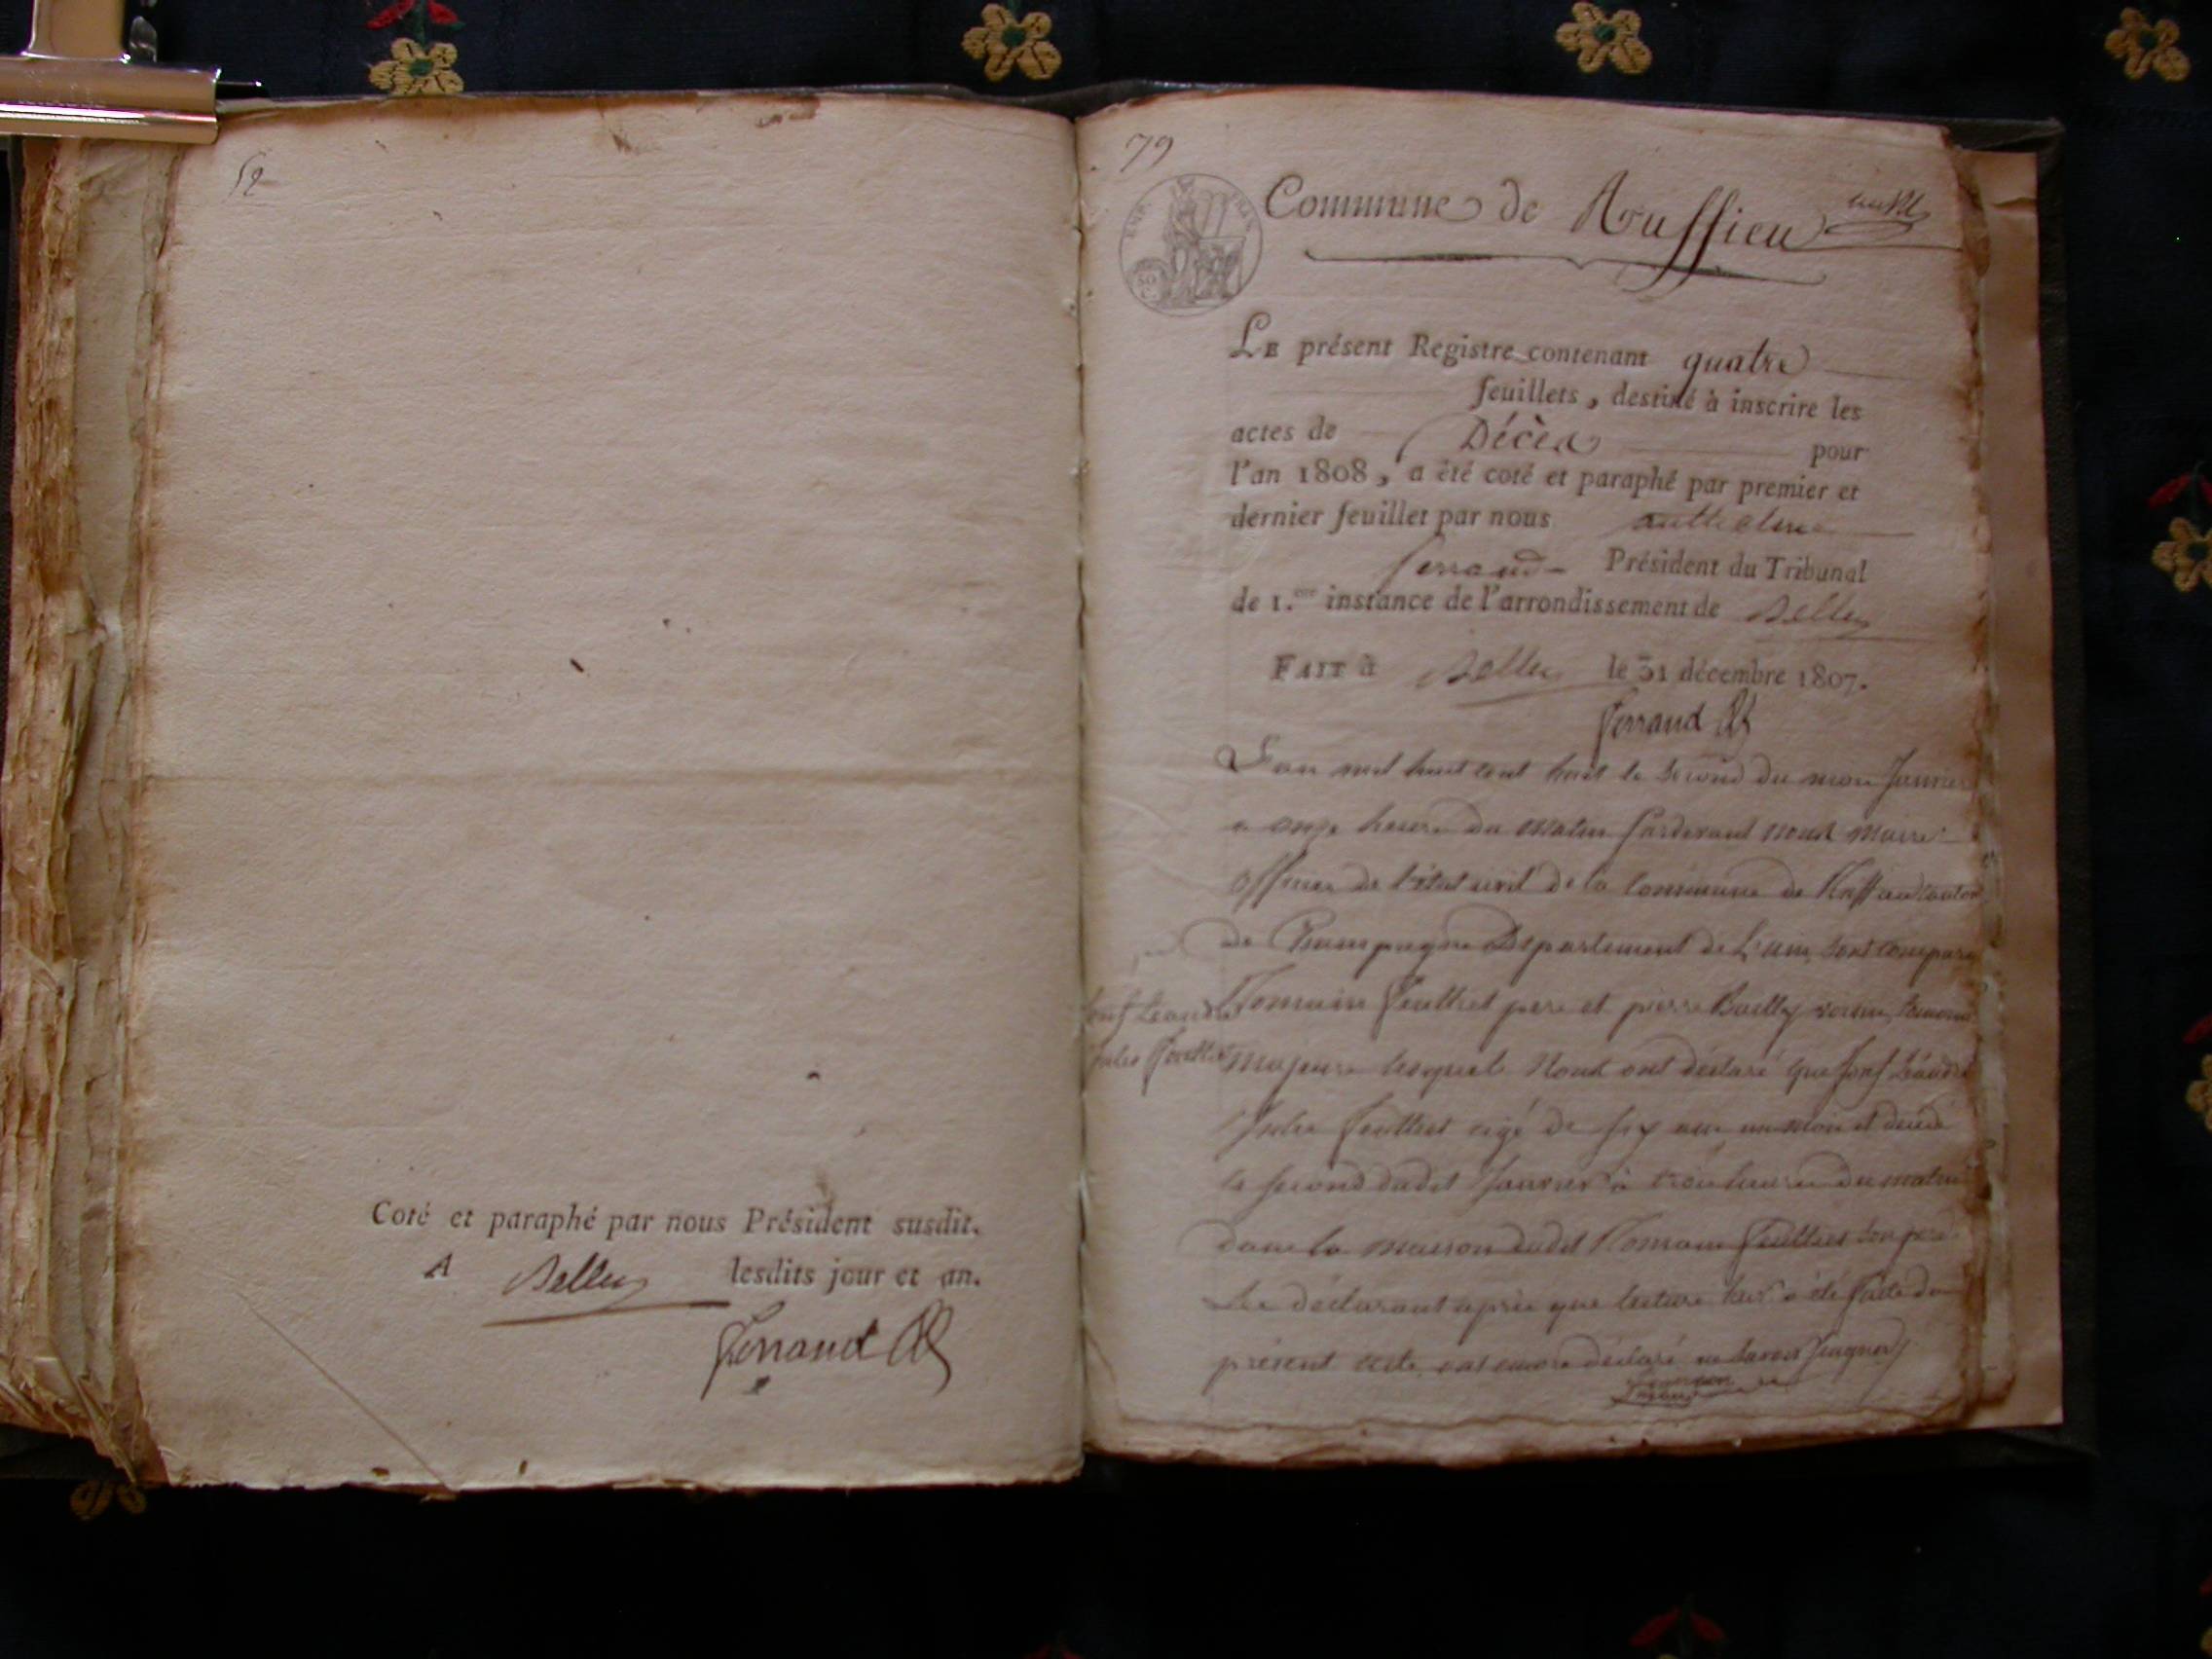 52
Coté et paraphé par nous Président susdit.
A Belley lesdits jour et an.
Ferrand
79
EMP. FRAN.
50
Commune de Ruffieu
LE présent Registre contenant quatre
feuillets, destiné à inscrire les
actes de Décès pour
l'an 1808, a été coté et paraphé par premier et
dernier feuillet par nous anthelme
ferrand Président du Tribunal
de 1.ere instance de l'arrondissement de Belley
FAIT à Belley le 31 décembre 1807.
Ferrand
L'an mil huit cent huit le second du mois Janvier
a onze heure du matin pardevant nous maire
officier de l'état civil de la commune de Ruffieu canton
de Champagne Département de L'ain, sont comparu
Romain père et pierre voisin
majeure lesquels Nous ont déclaré que Léandre
Jules agé de six ans un mois est décédé
le second dudit Janvier à trois heures du matin
dans la maison dudit Romain son père
Les déclarant après que lecture leur a été faite du
présent acte, ont encore déclaré ne savoir signer